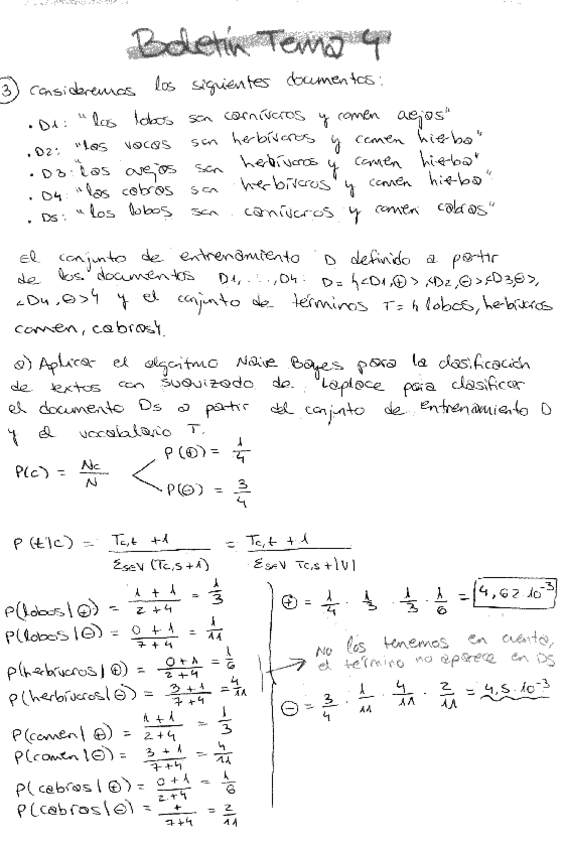 Boletín Tema 4
③ Consideremos los siguientes documentos:
• D1: "los lobos son carnívoros y comen ovejas"
• D2: "las vacas son herbívoros y comen hierba"
• D3: "las ovejas son herbívoros y comen hierba"
• D4: "las cabras son herbívoros y comen hierba"
• D5: "los lobos son carnívoros y comen cabras"
El conjunto de entrenamiento D definido a partir
de los documentos D1, ..., D4: D = {<D1,⊕>, <D2,⊖>, <D3,⊖>,
<D4,⊖>} y el conjunto de términos T = {lobos, herbívoros
comen, cabras}.
a) Aplicar el algoritmo Naive Bayes para la clasificación
de textos con suavizado de Laplace para clasificar
el documento D5 a partir del conjunto de entrenamiento D
y el vocabulario T.
P(c) = Nc/N
P(⊕) = 1/4
P(⊖) = 3/4
P(t|c) = Tc,t +1 / Σs∈V (Tc,s+1) = Tc,t +1 / Σs∈V Tc,s+|V|
P(lobos|⊕) = 1+1 / 2+4 = 1/3
P(lobos|⊖) = 0+1 / 7+4 = 1/11
P(herbívoros|⊕) = 0+1 / 2+4 = 1/6
P(herbívoros|⊖) = 3+1 / 7+4 = 4/11
P(comen|⊕) = 1+1 / 2+4 = 1/3
P(comen|⊖) = 3+1 / 7+4 = 4/11
P(cabras|⊕) = 0+1 / 2+4 = 1/6
P(cabras|⊖) = + / 7+4 = 2/11
⊕ = 1/4 · 1/3 · 1/3 · 1/6 = 4,62·10⁻³
No los tenemos en cuenta,
el término no aparece en D5
⊖ = 3/4 · 1/11 · 4/11 · 2/11 = 4,5·10⁻³